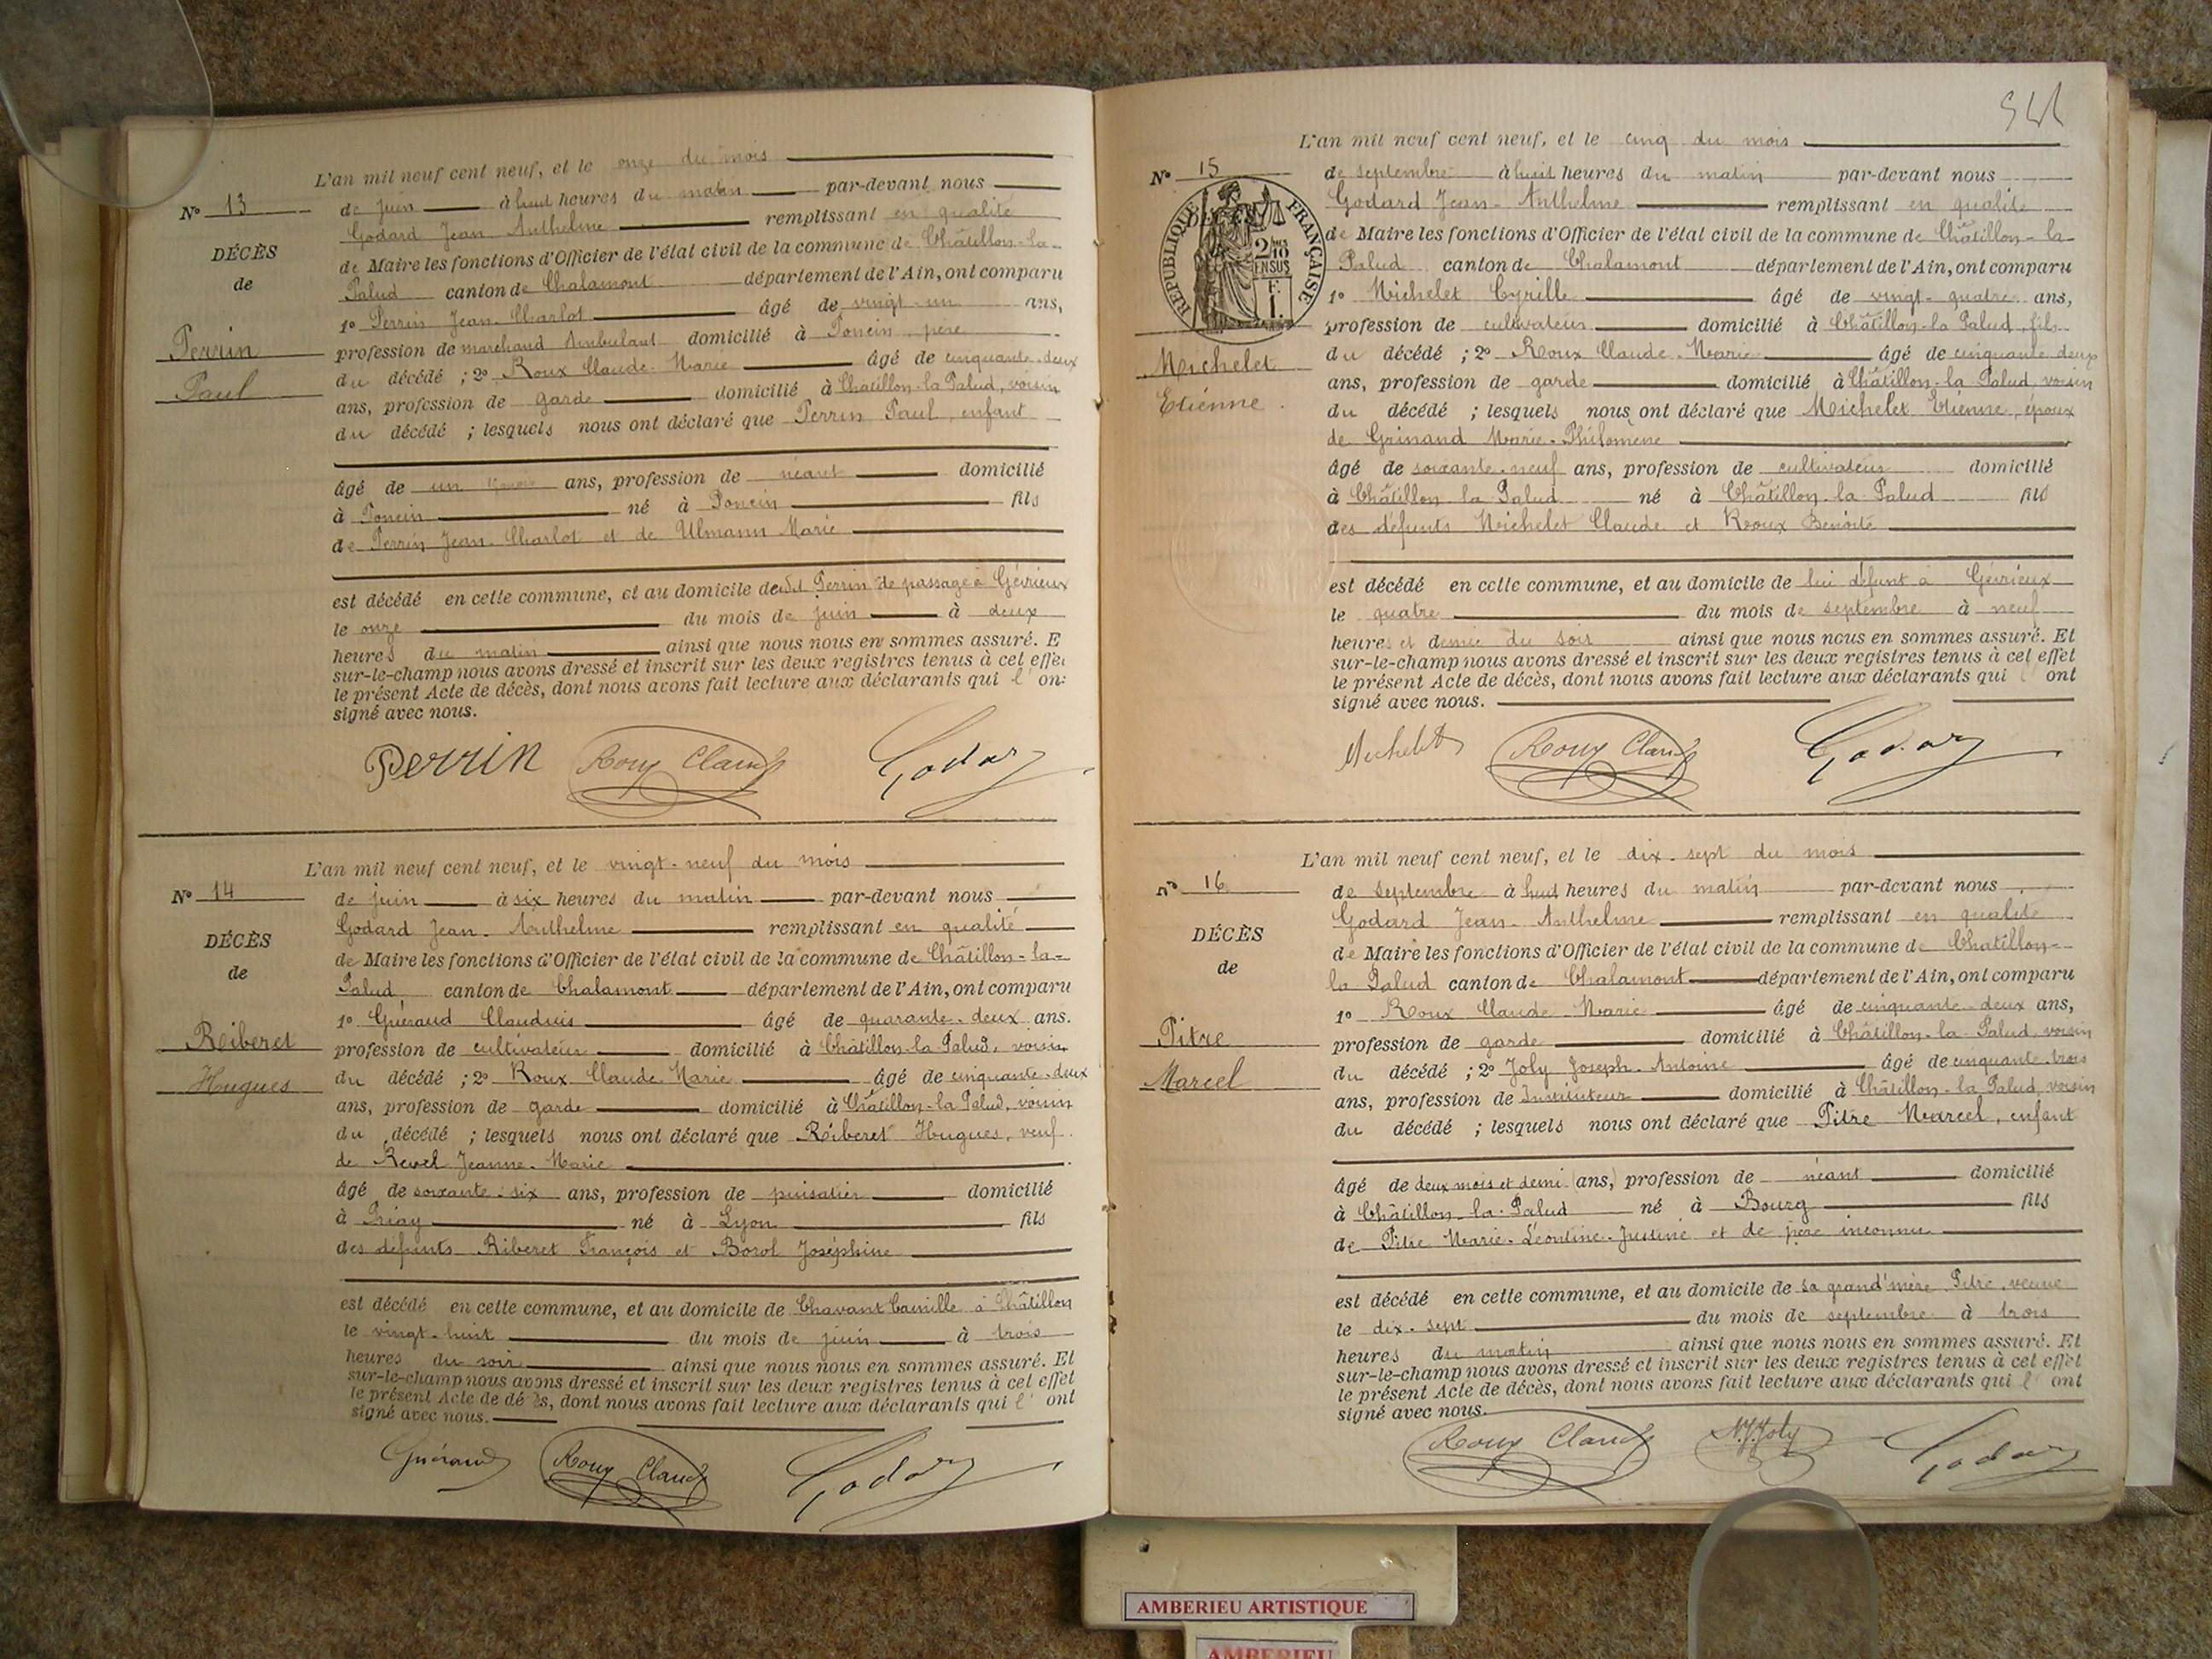 L'an mil neuf cent neuf, et le onze du mois
N° 13
de juin à huit heures du matin par-devant nous
Godard Jean Anthelme remplissant en qualité
DÉCÈS
de Maire les fonctions d'Officier de l'état civil de la commune de Châtillon-la-
de
Palud canton de Chalamont département de l'Ain, ont comparu
1° Perrin Jean-Charlot âgé de vingt-un ans,
Perrin
profession de marchand Ambulant domicilié à Poncin, père
Paul
du décédé ; 2° Roux Claude-Marie âgé de cinquante-deux
ans, profession de garde domicilié à Châtillon-la Palud, voisin
du décédé ; lesquels nous ont déclaré que Perrin Paul, enfant
âgé de un ans, profession de néant domicilié
à Poncin né à Poncin fils
de Perrin Jean-Charlot et de Ulmann Marie
est décédé en cette commune, et au domicile de Perrin de passage à Gévrieux
le onze du mois de juin à deux
heures du matin ainsi que nous nous en sommes assuré. E
sur-le-champ nous avons dressé et inscrit sur les deux registres tenus à cet effet
le présent Acte de décès, dont nous avons fait lecture aux déclarants qui l' ont
signé avec nous.
Perrin Roux Claude Godard
L'an mil neuf cent neuf, et le vingt-neuf du mois
N° 14
de juin à six heures du matin par-devant nous
Godard Jean-Anthelme remplissant en qualité
DÉCÈS
de Maire les fonctions d'Officier de l'état civil de la commune de Châtillon-la-
de
Palud canton de Chalamont département de l'Ain, ont comparu
1° Guéraud Claudius âgé de quarante-deux ans.
Reiberet
profession de cultivateur domicilié à Châtillon-la Palud, voisin
Hugues
du décédé ; 2° Roux Claude Marie âgé de cinquante-deux
ans, profession de garde domicilié à Châtillon-la Palud, voisin
du décédé ; lesquels nous ont déclaré que Riberet Hugues, veuf
de Revel Jeanne-Marie
âgé de soixante-six ans, profession de puisatier domicilié
à Priay né à Lyon fils
des défunts Riberet François et Borol Joséphine
est décédé en cette commune, et au domicile de Chavant Camille à Châtillon
le vingt-huit du mois de juin à trois
heures du soir ainsi que nous nous en sommes assuré. Et
sur-le-champ nous avons dressé et inscrit sur les deux registres tenus à cet effet
le présent Acte de décès, dont nous avons fait lecture aux déclarants qui l' ont
signé avec nous.
Guéraud Roux Claude Godard
L'an mil neuf cent neuf, et le cinq du mois
N° 15
de septembre à huit heures du matin par-devant nous
Godard Jean-Anthelme remplissant en qualité
RÉPUBLIQUE FRANÇAISE
2/10 EN SUS
F. 1.
de Maire les fonctions d'Officier de l'état civil de la commune de Châtillon-la
Palud canton de Chalamont département de l'Ain, ont comparu
1° Michelet Cyrille âgé de vingt-quatre ans,
profession de cultivateur domicilié à Châtillon-la Palud, fils
Michelet
du décédé ; 2° Roux Claude-Marie âgé de cinquante deux
Etienne.
ans, profession de garde domicilié à Châtillon-la Palud, voisin
du décédé ; lesquels nous ont déclaré que Michelet Etienne, époux
de Grinand Marie-Philomène
âgé de soixante-neuf ans, profession de cultivateur domicilié
à Châtillon la Palud né à Châtillon-la Palud fils
des défunts Michelet Claude et Roux Benoite
est décédé en cette commune, et au domicile de lui défunt à Gévrieux
le quatre du mois de septembre à neuf
heures et demie du soir ainsi que nous nous en sommes assuré. Et
sur-le-champ nous avons dressé et inscrit sur les deux registres tenus à cet effet
le présent Acte de décès, dont nous avons fait lecture aux déclarants qui l' ont
signé avec nous.
Michelet Roux Claude Godard
L'an mil neuf cent neuf, et le dix-sept du mois
N° 16
de septembre à huit heures du matin par-devant nous
Godard Jean-Anthelme remplissant en qualité
DÉCÈS
de Maire les fonctions d'Officier de l'état civil de la commune de Châtillon-
de
la Palud canton de Chalamont département de l'Ain, ont comparu
1° Roux Claude-Marie âgé de cinquante-deux ans,
Pitre
profession de garde domicilié à Châtillon-la-Palud, voisin
Marcel
du décédé ; 2° Joly Joseph-Antoine âgé de cinquante-trois
ans, profession de Instituteur domicilié à Châtillon-la Palud, voisin
du décédé ; lesquels nous ont déclaré que Pitre Marcel, enfant
âgé de deux mois et demi (ans,) profession de néant domicilié
à Châtillon-la-Palud né à Bourg fils
de Pitre Marie-Léontine-Justine et de père inconnu
est décédé en cette commune, et au domicile de sa grand'mère Pitre, veuve
le dix-sept du mois de septembre à trois
heures du matin ainsi que nous nous en sommes assuré. Et
sur-le-champ nous avons dressé et inscrit sur les deux registres tenus à cet effet
le présent Acte de décès, dont nous avons fait lecture aux déclarants qui l' ont
signé avec nous.
Roux Claude Joly Godard
AMBERIEU ARTISTIQUE
AMBERIEU